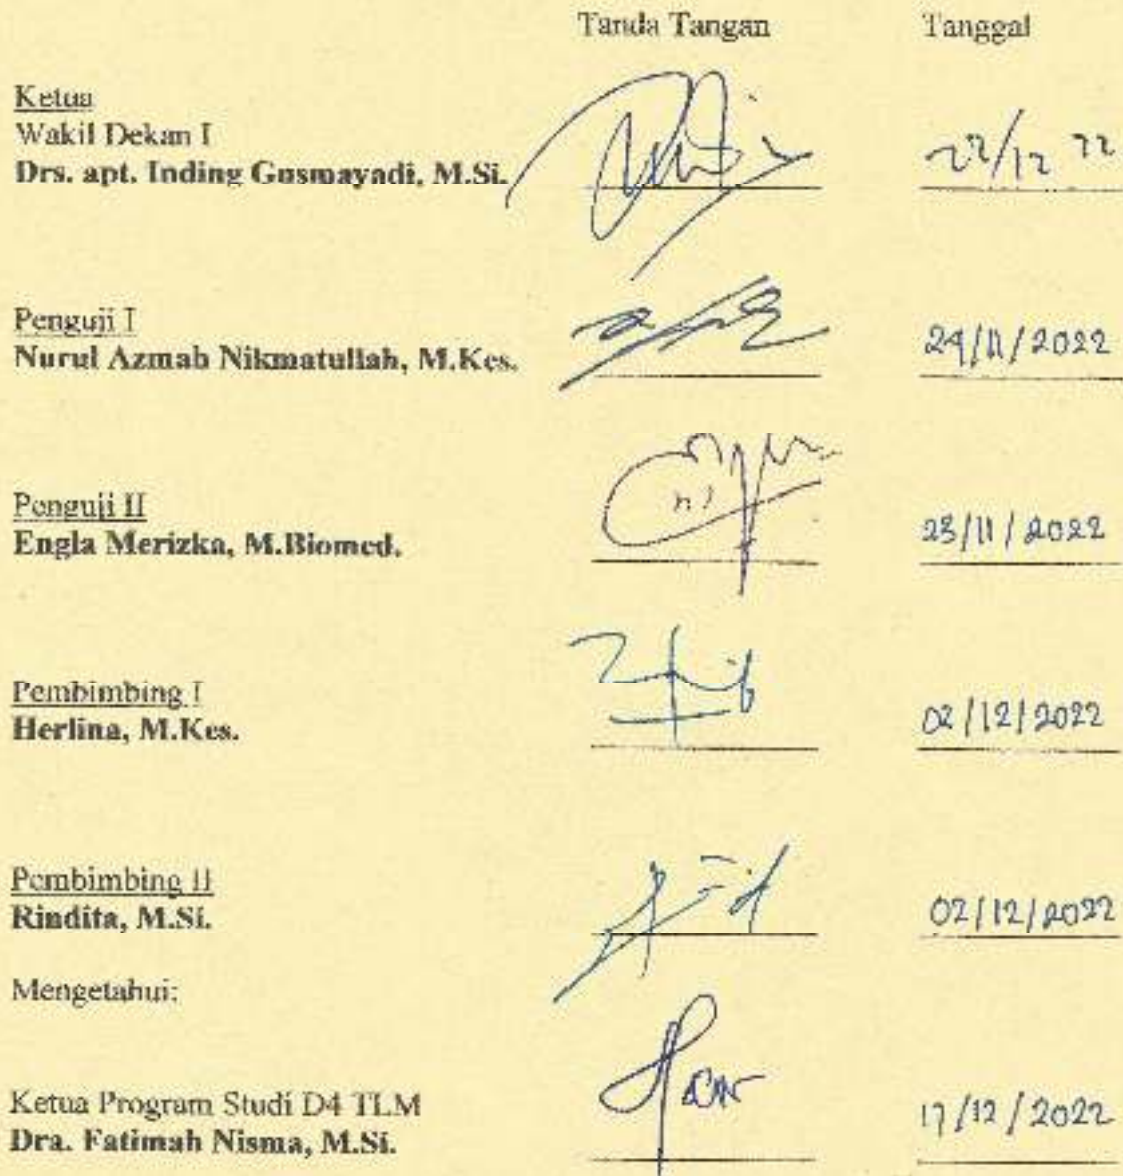 Tanda Tangan Tanggal
Ketua
Wakil Dekan I
Drs. apt. Inding Gusmayadi, M.Si. 22/12 22
Penguji I
Nurul Azmah Nikmatullah, M.Kes. 24/11/2022
Penguji II
Engla Merizka, M.Biomed. 23/11/2022
Pembimbing I
Herlina, M.Kes. 02/12/2022
Pembimbing II
Rindita, M.Si. 02/12/2022
Mengetahui:
Ketua Program Studi D4 TLM
Dra. Fatimah Nisma, M.Si. 17/12/2022